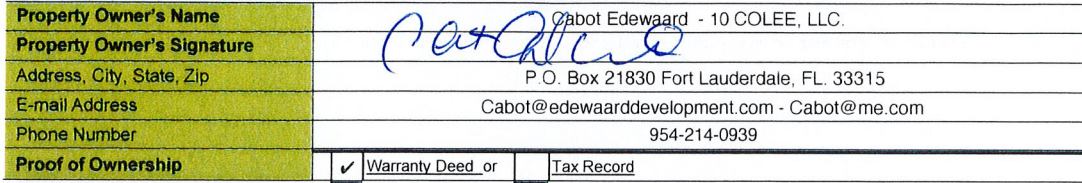 Property Owner's Name Cabot Edewaard - 10 COLEE, LLC.
Property Owner's Signature
Address, City, State, Zip P.O. Box 21830 Fort Lauderdale, FL. 33315
E-mail Address Cabot@edewaarddevelopment.com - Cabot@me.com
Phone Number 954-214-0939
Proof of Ownership ✓ Warranty Deed or Tax Record